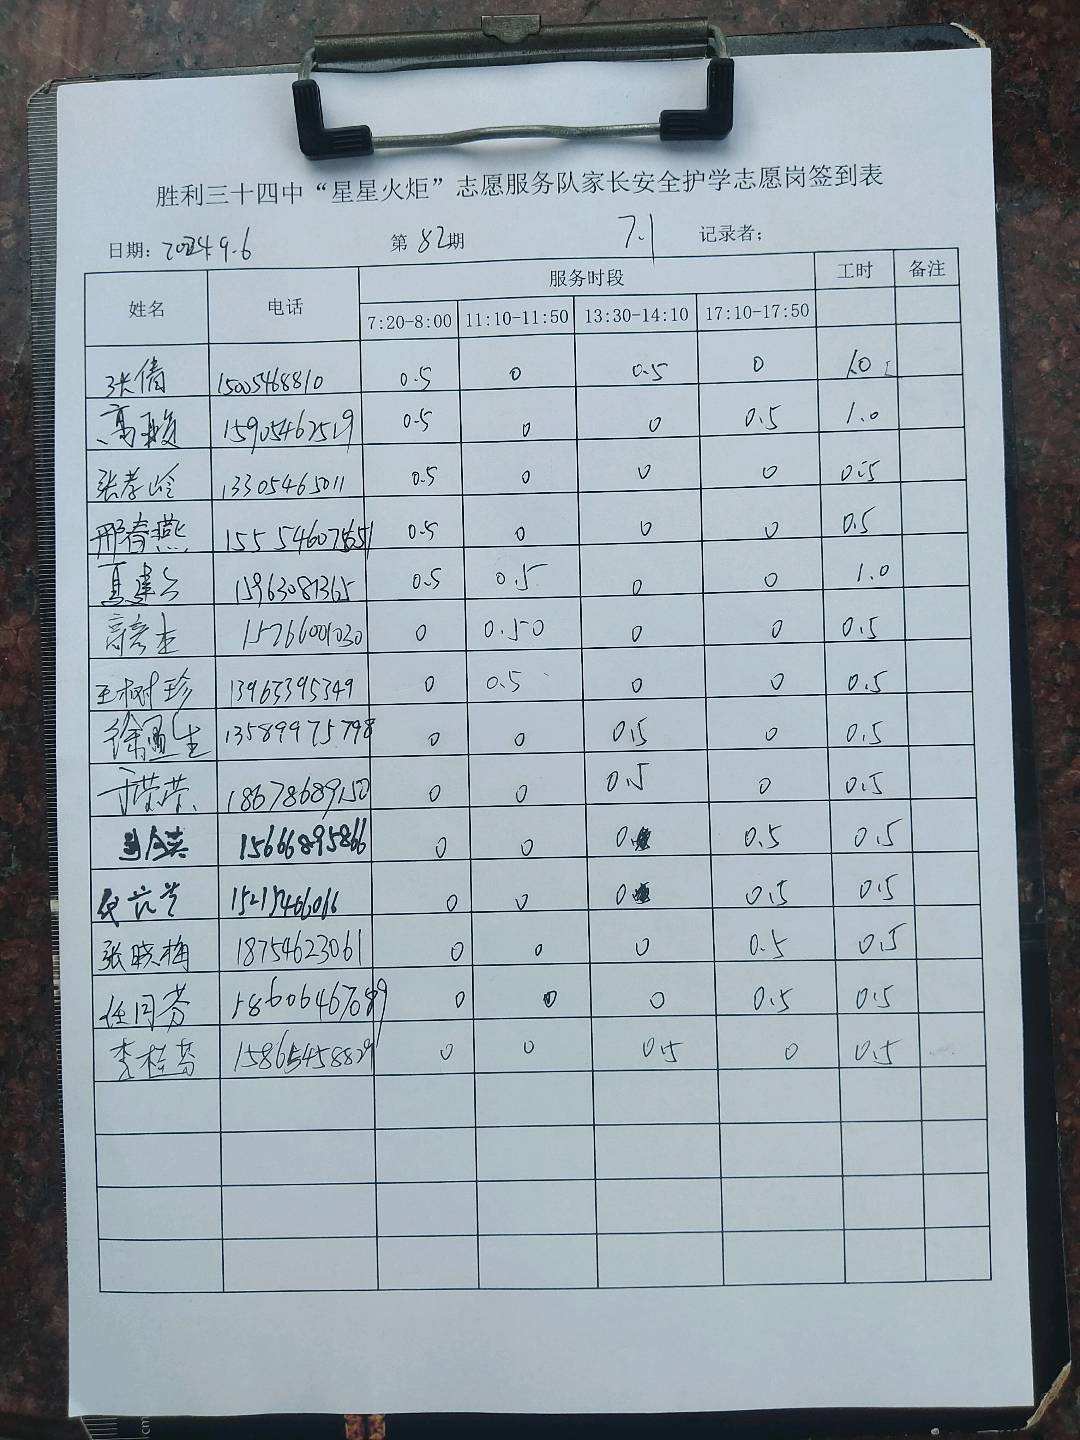 胜利三十四中“星星火炬”志愿服务队家长安全护学志愿岗签到表
日期: 2024 9.6 第 82 期 7.1 记录者;
姓名 电话 服务时段 工时 备注
7:20-8:00 11:10-11:50 13:30-14:10 17:10-17:50
张倩 15005468810 0.5 0 0.5 0 1.0
高 15905467519 0.5 0 0 0.5 1.0
张孝岭 13305465011 0.5 0 0 0 0.5
邢春燕 0.5 0 0 0 0.5
夏建 15963081365 0.5 0.5 0 0 1.0
高 15766001030 0 0.50 0 0 0.5
王树珍 13963395349 0 0.5 0 0 0.5
徐 生 13589975798 0 0 0.5 0 0.5
于荣荣 18678689150 0 0 0.5 0 0.5
15666895866 0 0 0 0.5 0.5
0 0 0 0.5 0.5
张晓梅 18754623061 0 0 0 0.5 0.5
任同芬 18606467089 0 0 0 0.5 0.5
李桂芬 15865458829 0 0 0.5 0 0.5